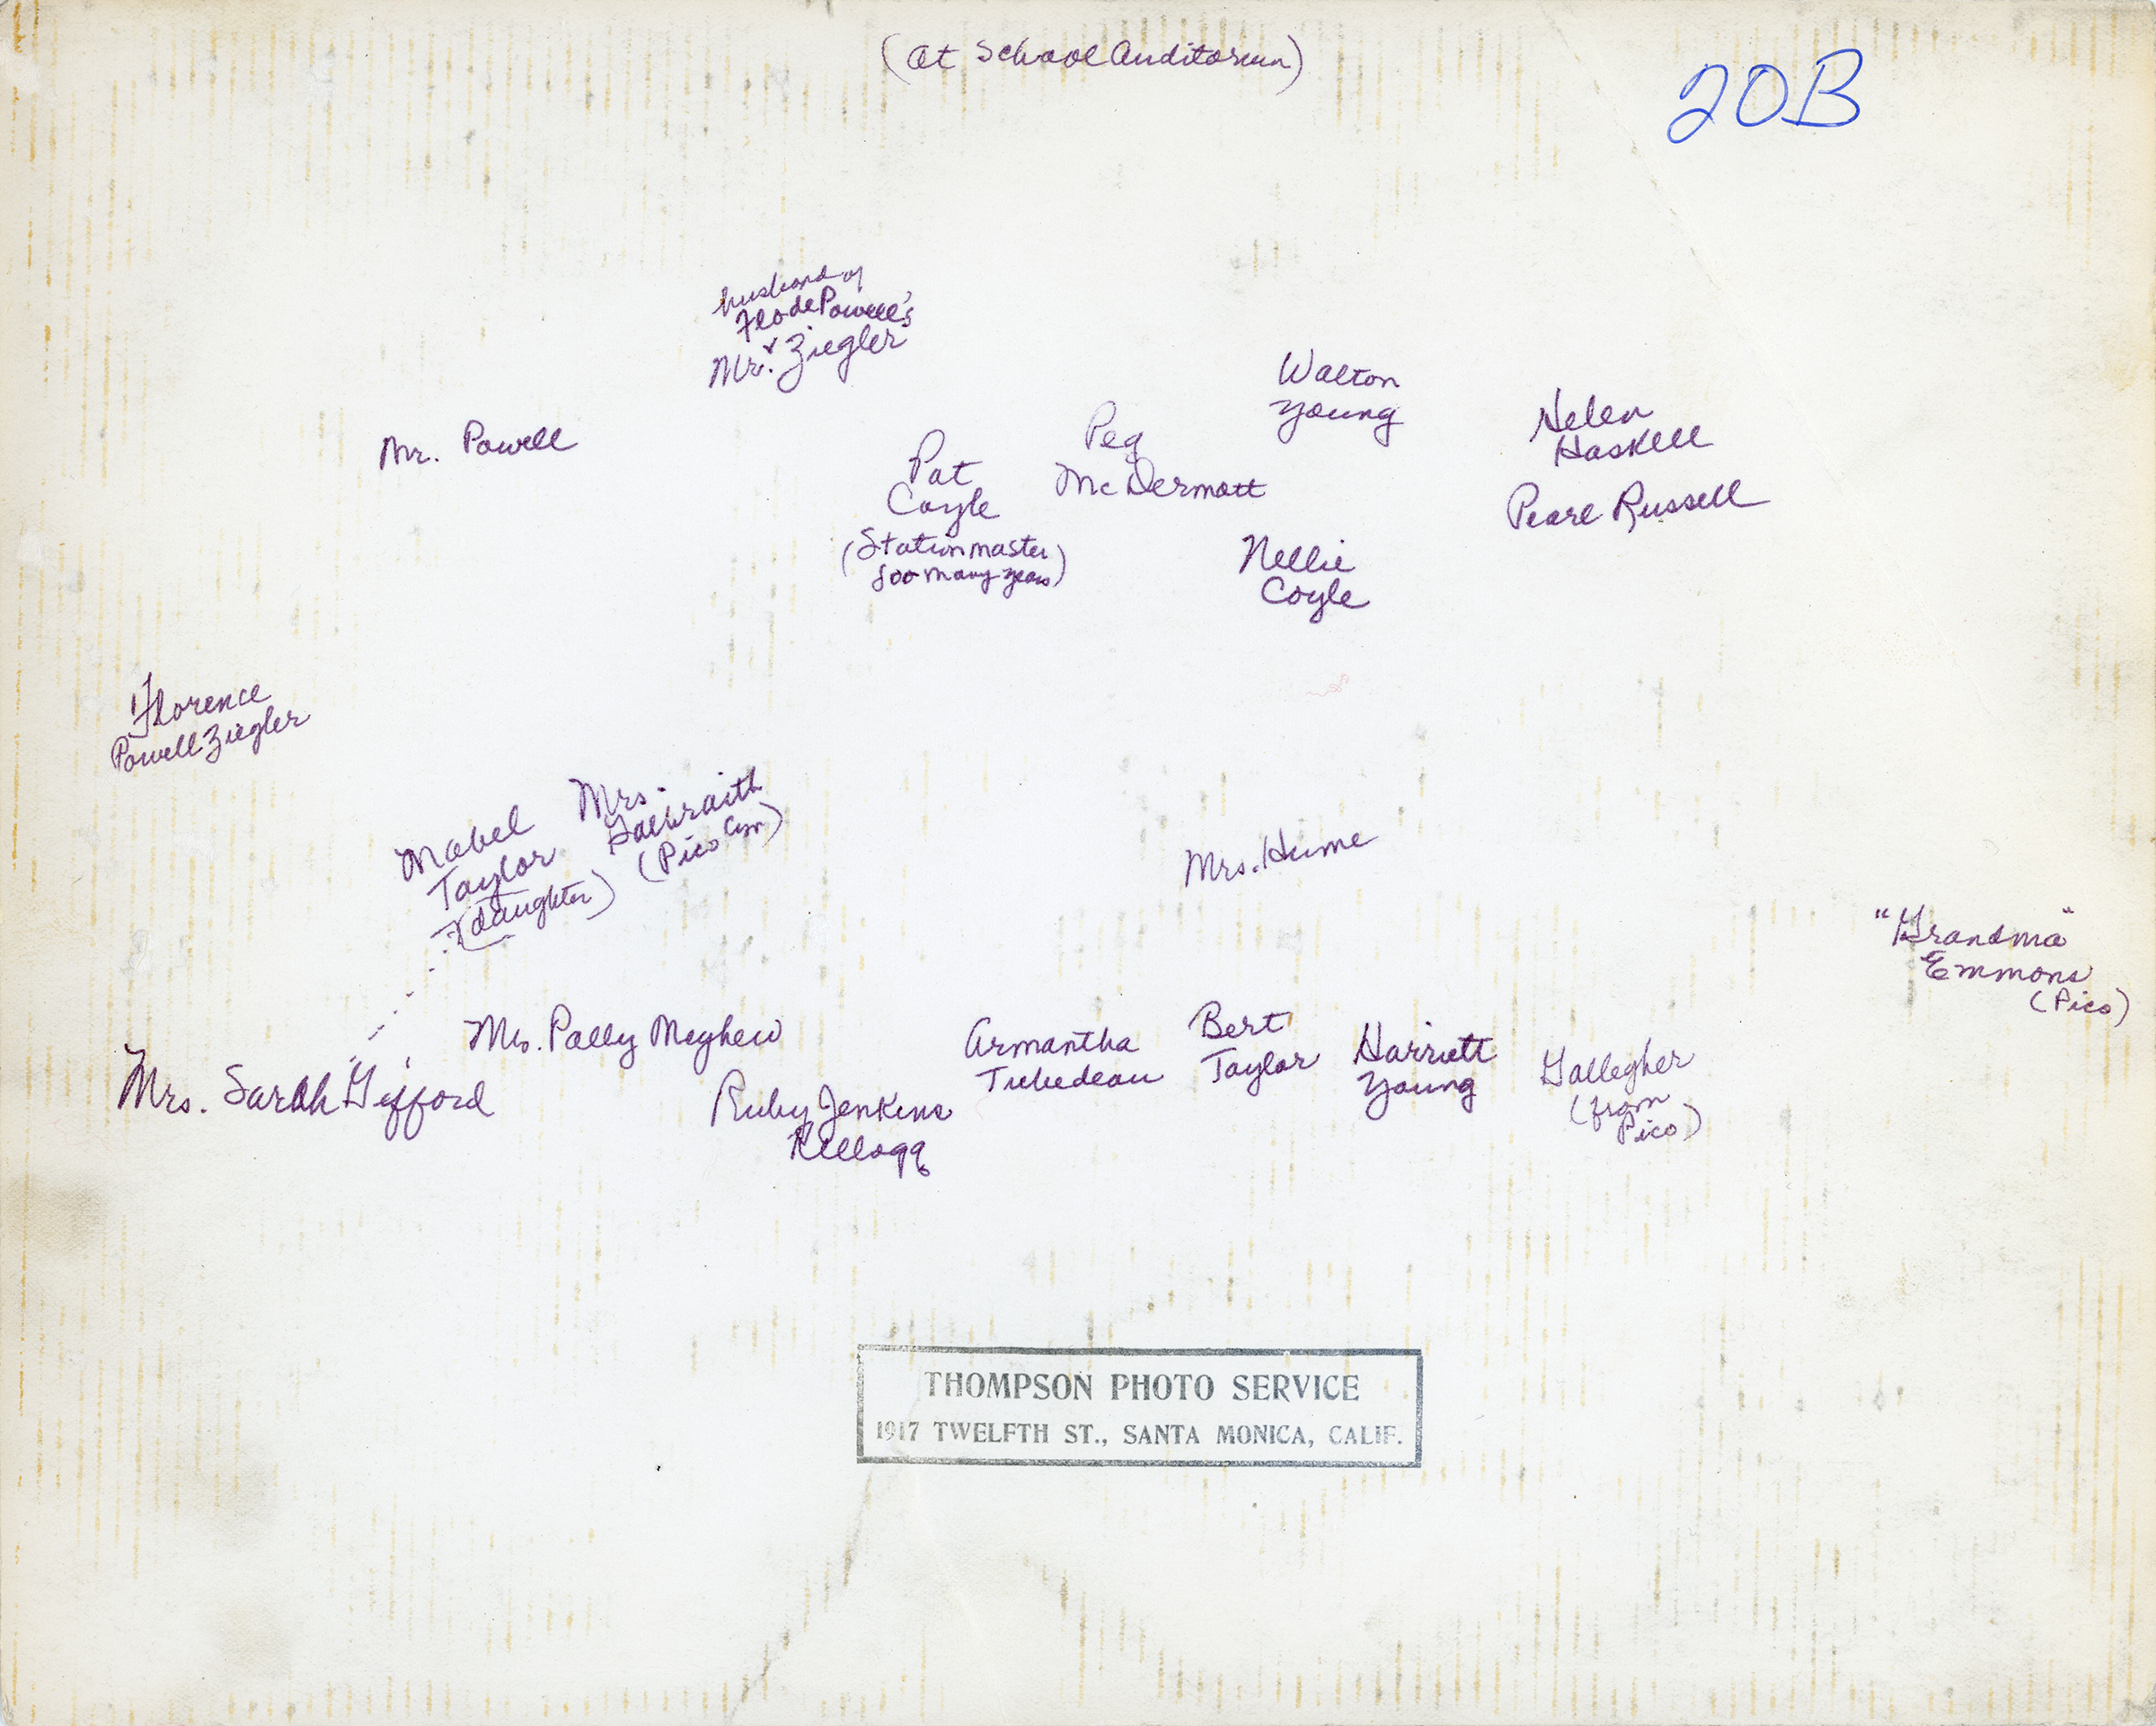 (at School Auditorium)
20B
husband of
Flo de Powell's
Mr. Ziegler
Mr. Powell
Walton
Young
Helen
Haskell
Pearl Russell
Peg
McDermott
Pat
Coyle
(Stationmaster
soo many years)
Nellie
Coyle
Florence
Powell Ziegler
Mabel
Taylor
(daughter)
Mrs.
Galbraith
(Pico Cyn)
Mrs. Hume
"Grandma"
Emmons
(Pico)
Mrs. Sarah Gifford
Mrs. Polly Meyhew
Ruby Jenkins
Kellogg
Armantha
Bert
Taylor
Harriett
Young
Gallegher
(from
Pico)
THOMPSON PHOTO SERVICE
1917 TWELFTH ST., SANTA MONICA, CALIF.